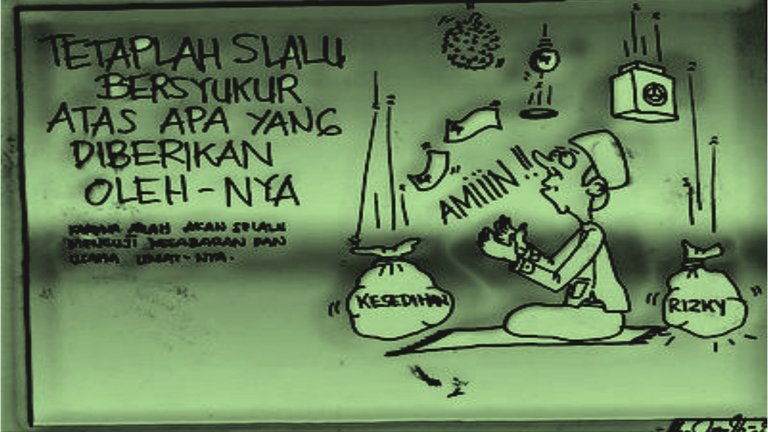 TETAPLAH SLALU
BERSYUKUR
ATAS APA YANG
DIBERIKAN
OLEH-NYA
KARNA ALLAH AKAN SELALU
MENGUJI KESABARAN DAN
USAHA UMAT-NYA.
AMIIIN!!
KESEDIHAN
RIZKY